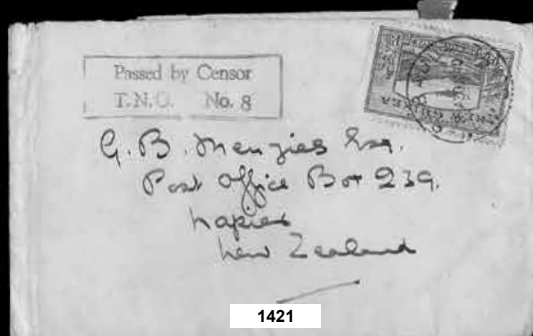 Passed by Censor
T.N.G. No. 8
G. B. Menzies Esq.
Post Office Box 239.
Napier
New Zealand
1421